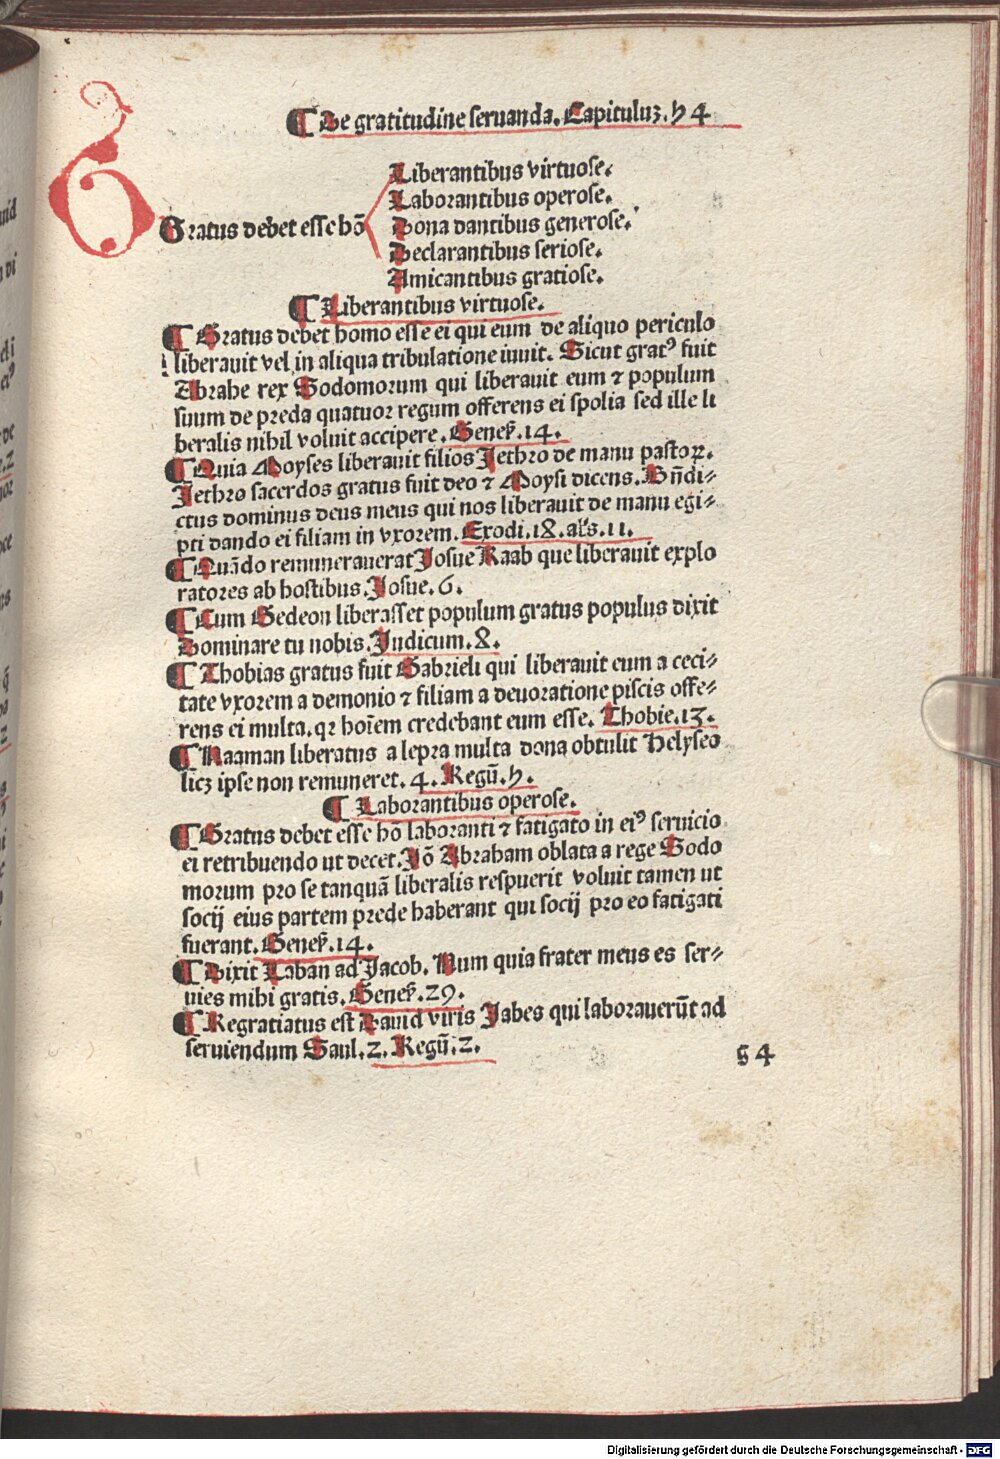 ¶ De gratitudine seruanda. Capituluꝫ. 54
Liberantibus virtuose.
Laborantibus operose.
Gratus debet esse hō Dona dantibus generose.
Declarantibus seriose.
Amicantibus gratiose.
¶ Liberantibus virtuose.
¶ Gratus debet homo esse ei qui eum de aliquo periculo
liberauit vel in aliqua tribulatione iuuit. Sicut gratꝰ fuit
Abrahe rex Sodomorum qui liberauit eum ⁊ populum
suum de preda quatuor regum offerens ei spolia sed ille li
beralis nihil voluit accipere. Geneẜ. 14.
¶ Quia Moyses liberauit filios Jethro de manu pastoꝝ.
Jethro sacerdos gratus fuit deo ⁊ Moysi dicens. Bn̄di⸗
ctus dominus deus meus qui nos liberauit de manu egi⸗
pti dando ei filiam in vxorem. Exodi. 18. als. 11.
¶ Quādo remunerauerat Josue Raab que liberauit explo
ratores ab hostibus. Josue. 6.
¶ Cum Gedeon liberasset populum gratus populus dixit
Dominare tu nobis. Judicum. 8.
¶ Thobias gratus fuit Gabrieli qui liberauit eum a ceci⸗
tate vxorem a demonio ⁊ filiam a deuoratione piscis offe⸗
rens ei multa. qꝛ hoīem credebant eum esse. Thobie. 13.
¶ Naaman liberatus a lepra multa dona obtulit Helyseo
licꝫ ipse non remuneret. 4. Regū. 5.
¶ Laborantibus operose.
¶ Gratus debet esse hō laboranti ⁊ fatigato in eiꝰ seruicio
ei retribuendo ut decet. Jō Abraham oblata a rege Sodo
morum pro se tanquā liberalis respuerit voluit tamen ut
socij eius partem prede haberant qui socij pro eo fatigati
fuerant. Geneẜ. 14.
¶ Dixit Laban ad Jacob. Num quia frater meus es ser⸗
uies mihi gratis. Geneẜ. 29.
¶ Regratiatus est Dauid viris Jabes qui laborauerūt ad
seruiendum Saul. 2. Regū. 2.
s 4
Digitalisierung gefördert durch die Deutsche Forschungsgemeinschaft - DFG